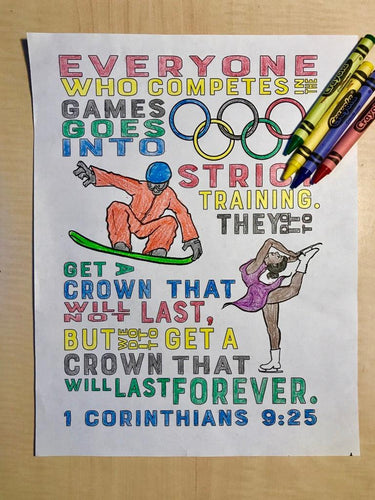 EVERYONE
WHO COMPETES IN THE
GAMES
GOES
INTO
STRICT
TRAINING.
THEY DO IT TO
GET A
CROWN THAT
WILL NOT LAST,
BUT WE DO IT TO GET A
CROWN THAT
WILL LAST FOREVER.
1 CORINTHIANS 9:25
Crayola
Crayola